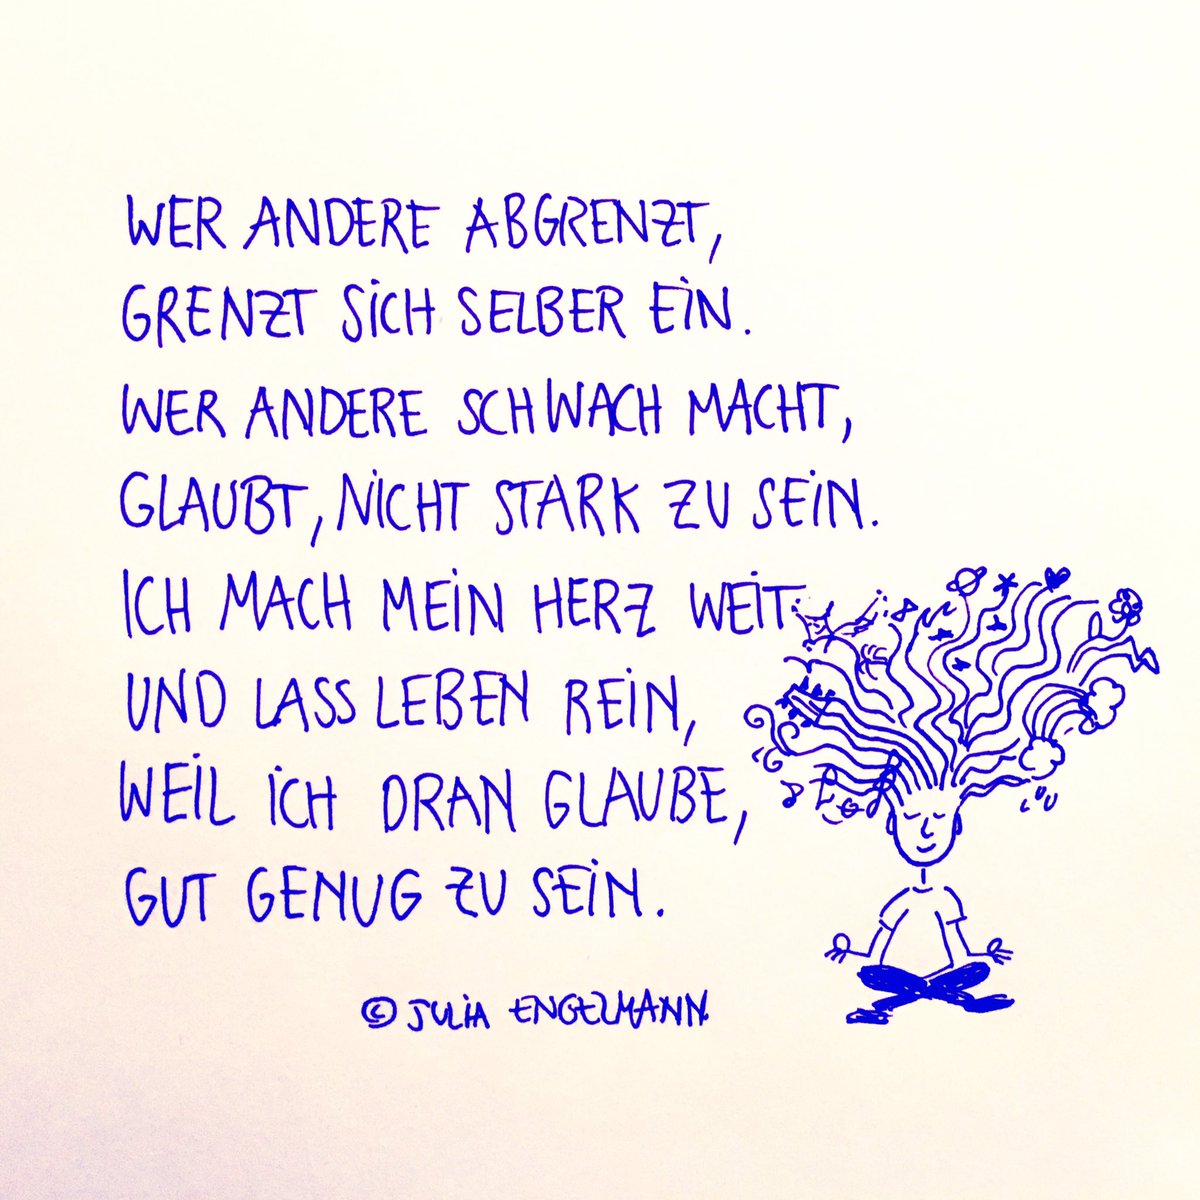 WER ANDERE ABGRENZT,
GRENZT SICH SELBER EIN.
WER ANDERE SCHWACH MACHT,
GLAUBT, NICHT STARK ZU SEIN.
ICH MACH MEIN HERZ WEIT
UND LASS LEBEN REIN,
WEIL ICH DRAN GLAUBE,
GUT GENUG ZU SEIN.
© JULIA ENGELMANN